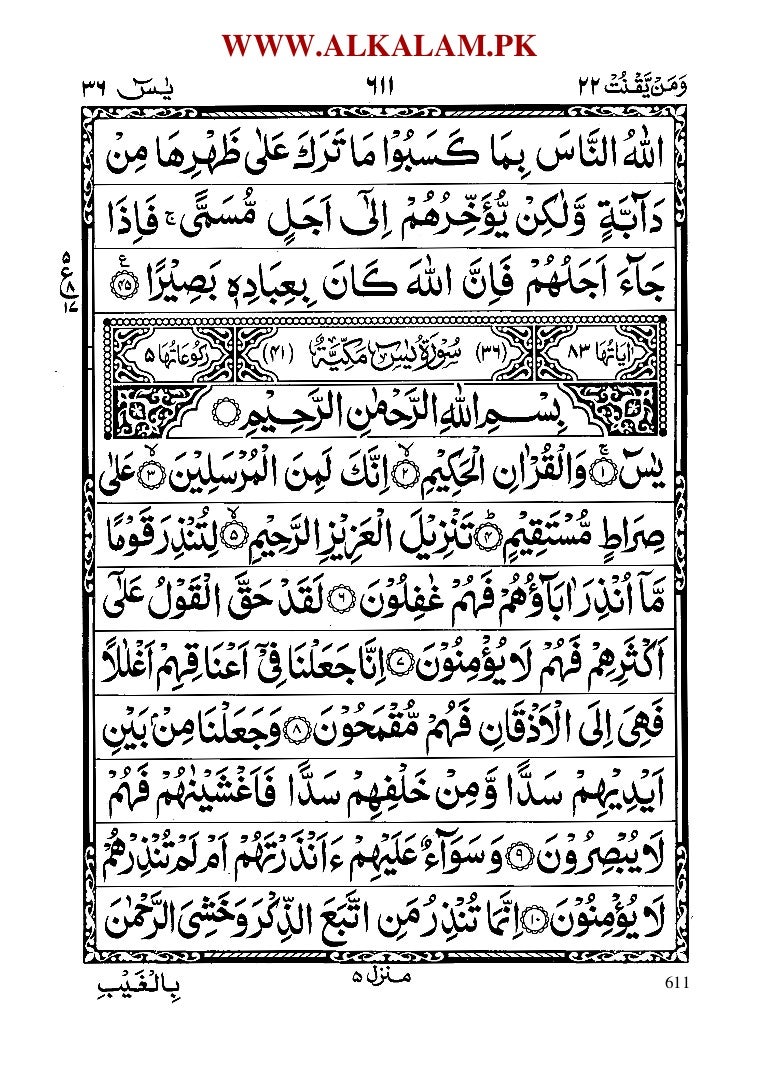 WWW.ALKALAM.PK
وَمَنْ يَّقْنُتْ ٢٢
٦١١
يٰسٓ ٣٦
اللّٰهُ النَّاسَ بِمَا كَسَبُوْا مَا تَرَكَ عَلٰى ظَهْرِهَا مِنْ
دَآبَّةٍ وَّلٰكِنْ يُّؤَخِّرُهُمْ اِلٰٓى اَجَلٍ مُّسَمًّى ۚ فَاِذَا
جَآءَ اَجَلُهُمْ فَاِنَّ اللّٰهَ كَانَ بِعِبَادِهٖ بَصِيْرًا ﴿٤٥﴾ ع
٥
ع
٨
١٧
اٰيَاتُهَا ٨٣ (٣٦) سُوْرَةُ يٰسٓ مَكِّيَّةٌ (٤١) رُكُوْعَاتُهَا ٥
بِسْمِ اللّٰهِ الرَّحْمٰنِ الرَّحِيْمِ
يٰسٓ ﴿١﴾ ۚ وَالْقُرْاٰنِ الْحَكِيْمِ ﴿٢﴾ ۙ اِنَّكَ لَمِنَ الْمُرْسَلِيْنَ ﴿٣﴾ ۙ عَلٰى
صِرَاطٍ مُّسْتَقِيْمٍ ﴿٤﴾ ؕ تَنْزِيْلَ الْعَزِيْزِ الرَّحِيْمِ ﴿٥﴾ ۙ لِتُنْذِرَ قَوْمًا
مَّاۤ اُنْذِرَ اٰبَآؤُهُمْ فَهُمْ غٰفِلُوْنَ ﴿٦﴾ لَقَدْ حَقَّ الْقَوْلُ عَلٰٓى
اَكْثَرِهِمْ فَهُمْ لَا يُؤْمِنُوْنَ ﴿٧﴾ اِنَّا جَعَلْنَا فِيْۤ اَعْنَاقِهِمْ اَغْلٰلًا
فَهِىَ اِلَى الْاَذْقَانِ فَهُمْ مُّقْمَحُوْنَ ﴿٨﴾ وَجَعَلْنَا مِنْۢ بَيْنِ
اَيْدِيْهِمْ سَدًّا وَّمِنْ خَلْفِهِمْ سَدًّا فَاَغْشَيْنٰهُمْ فَهُمْ
لَا يُبْصِرُوْنَ ﴿٩﴾ وَسَوَآءٌ عَلَيْهِمْ ءَاَنْذَرْتَهُمْ اَمْ لَمْ تُنْذِرْهُمْ
لَا يُؤْمِنُوْنَ ﴿١٠﴾ اِنَّمَا تُنْذِرُ مَنِ اتَّبَعَ الذِّكْرَ وَخَشِىَ الرَّحْمٰنَ
منزل ٥
بِالْغَيْبِ
611